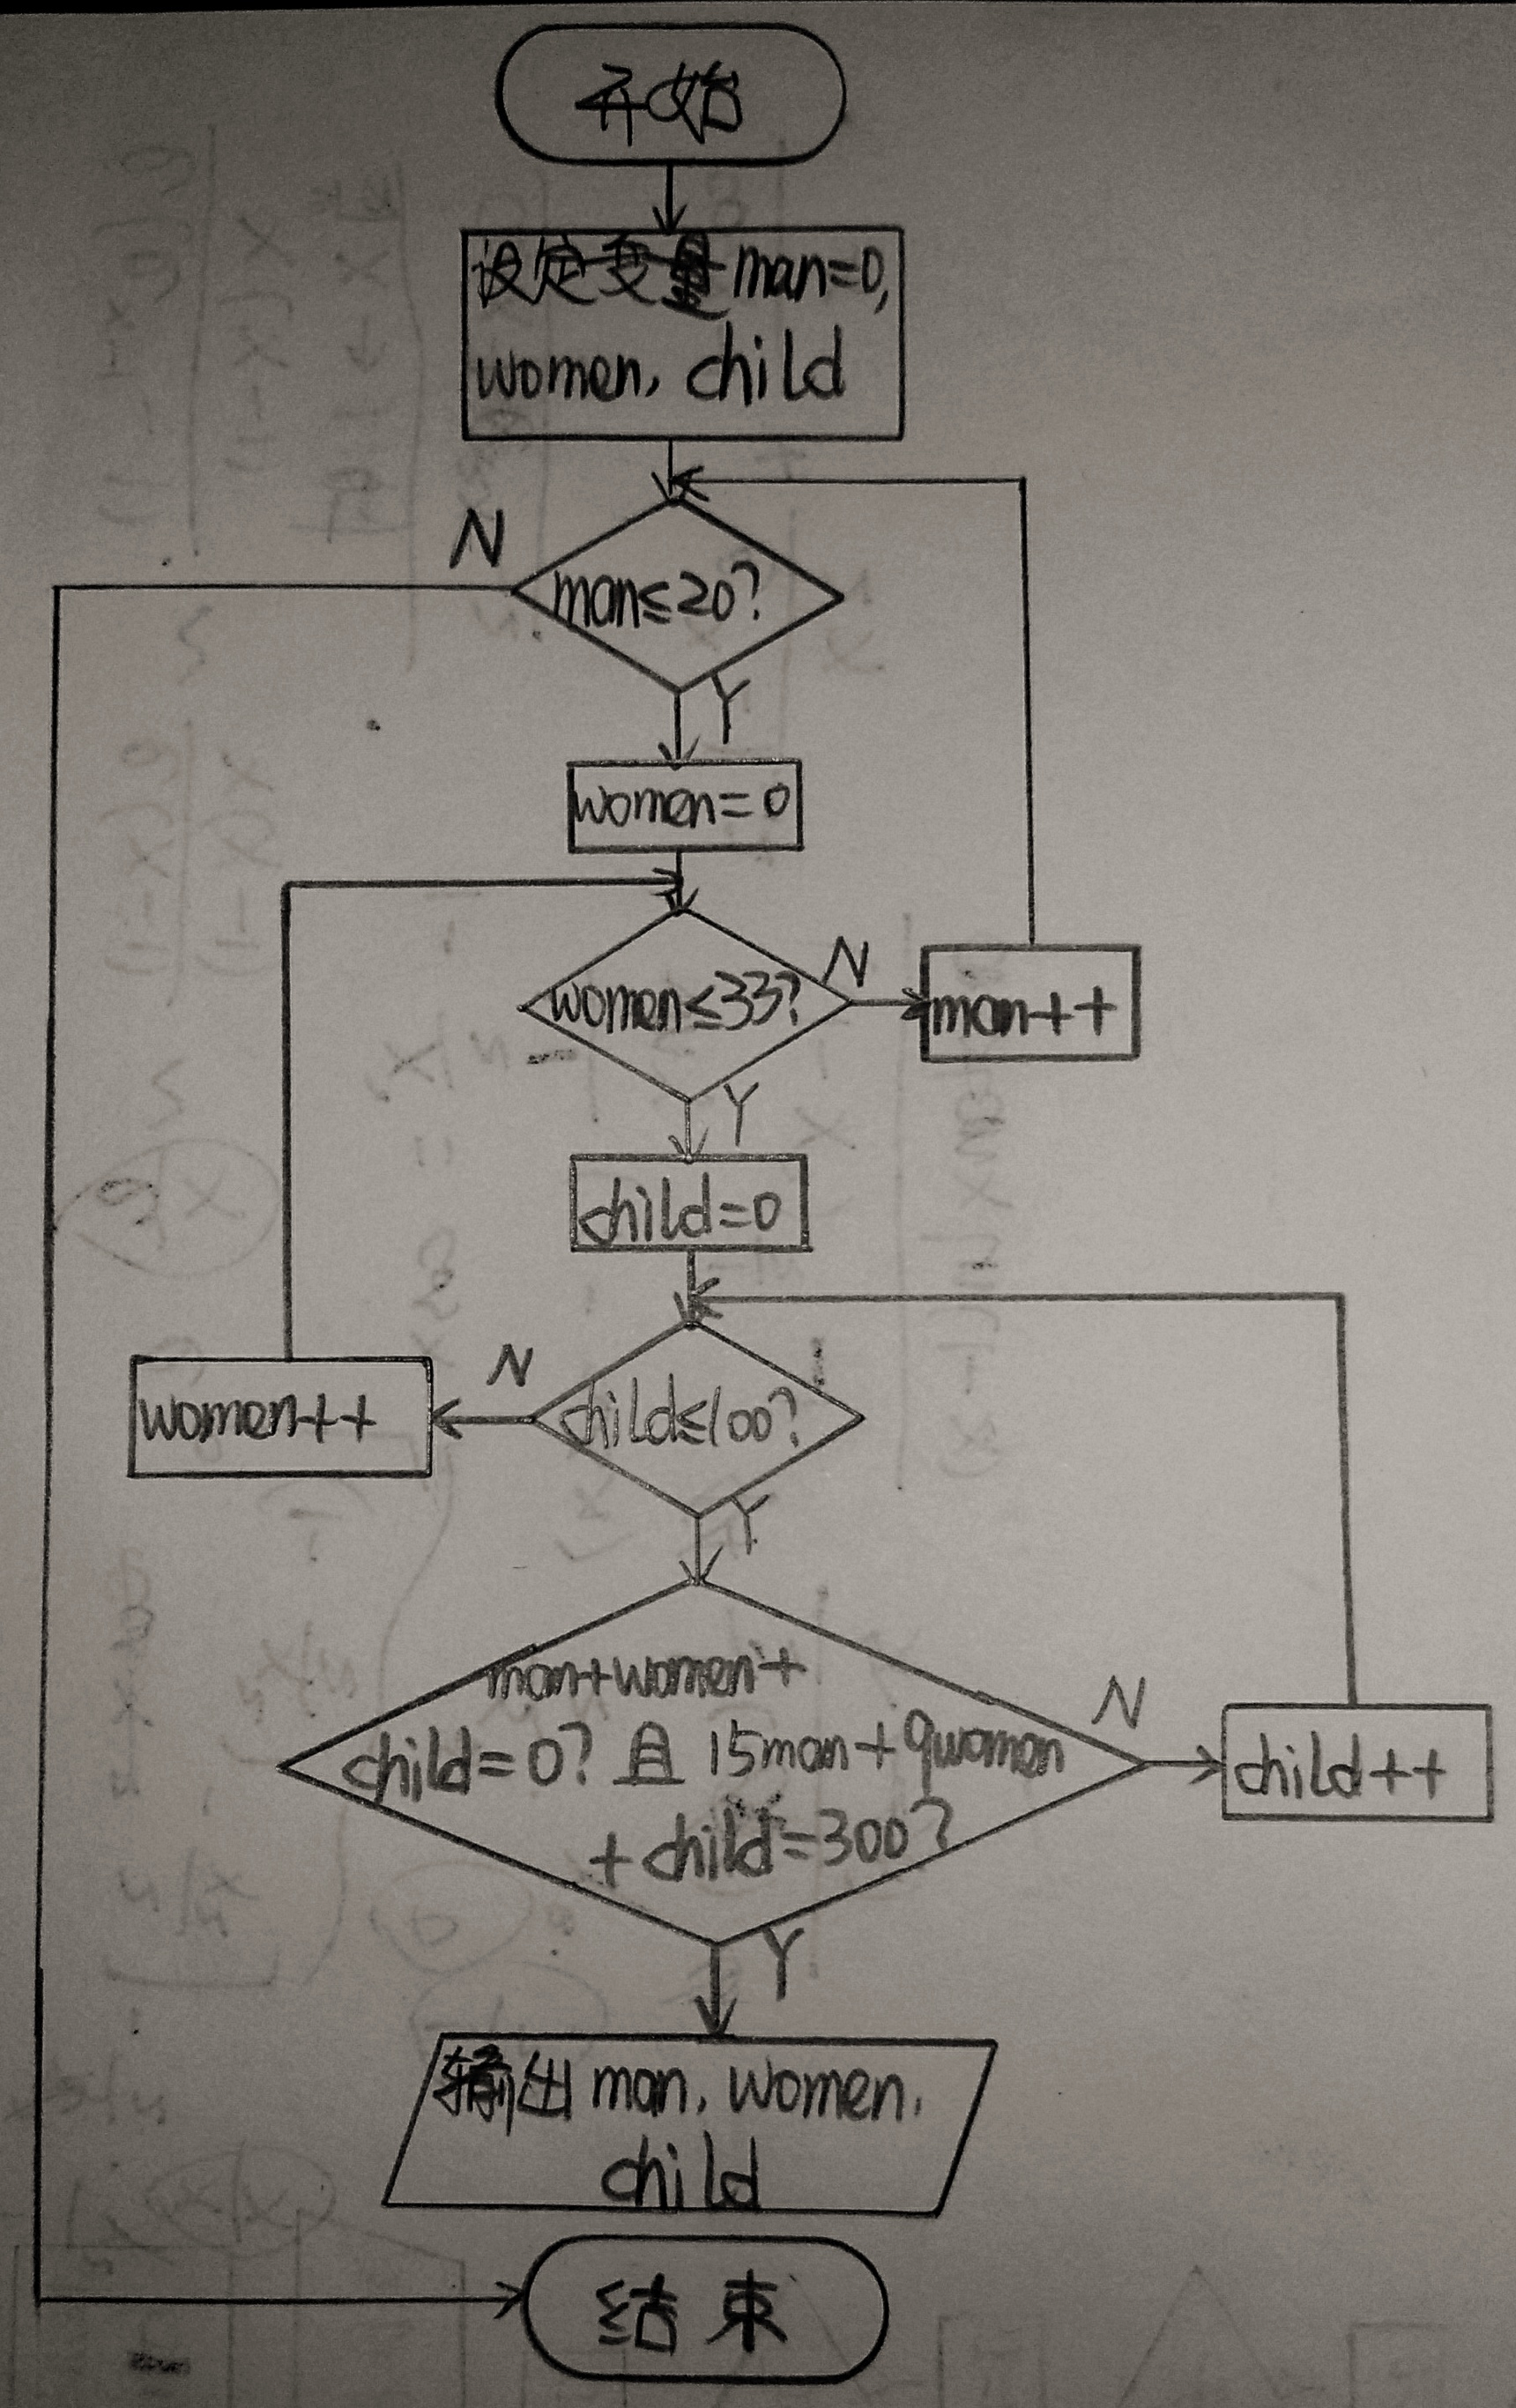 开始
设定变量 man=0,
women, child
N
man≤20?
Y
women=0
women≤33?
N
man++
Y
child=0
women++
N
child≤100?
Y
man+women+
child=0? 且 15man+9women
+child=300?
N
child++
Y
输出 man, women,
child
结束